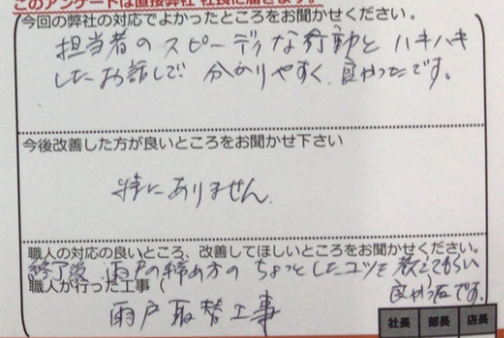 このアンケートは直接弊社 社長に届きます。
今回の弊社の対応でよかったところをお聞かせください。
担当者のスピーディな行動と ハキハキ
したお話しで 分かりやすく、良かったです。
今後改善した方が良いところをお聞かせ下さい
特にありません。
職人の対応の良いところ、改善してほしいところをお聞かせください。
終了後 雨戸の締め方の ちょっとしたコツを 教えてもらい
良かったです。
職人が行った工事 (
雨戸取替工事
社長 部長 店長